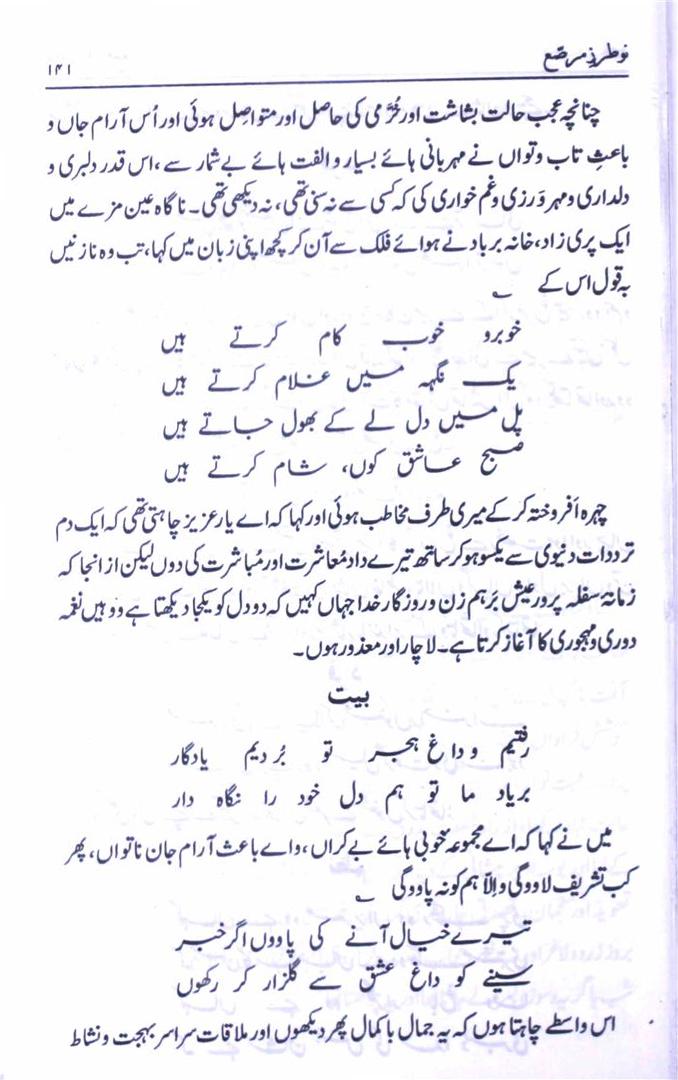 نو طرزِ مرصّع
۱۴۱
چنانچہ عجب حالت بشاشت اور خُرَّمی کی حاصل اور متواصِل ہوئی اور اُس آرام جاں و
باعثِ تاب و تواں نے مہربانی ہائے بسیار و الفت ہائے بے شمار سے، اس قدر دلبری و
دلداری و مہر وَرزی و غم خواری کی کہ کسی سے نہ سنی تھی، نہ دیکھی تھی۔ ناگاہ عین مزے میں
ایک پری زاد، خانہ برباد نے ہوائے فلک سے آن کر کچھ اپنی زبان میں کہا، تب وہ نازنیں
بہ قول اس کے ؎
خوبرو خوب کام کرتے ہیں
یک نگہہ میں غلام کرتے ہیں
پل میں دل لے کے بھول جاتے ہیں
صبح عاشق کوں، شام کرتے ہیں
چہرہ اَفروختہ کر کے میری طرف مخاطب ہوئی اور کہا کہ اے یار عزیز چاہتی تھی کہ ایک دم
تردداتِ دنیوی سے یکسو ہو کر ساتھ تیرے داد مُعاشرت اور مُباشرت کی دوں لیکن از انجا کہ
زمانۂ سفلہ پرور عیش بَرہم زن و روزگار خدا جہاں کہیں کہ دو دل کو یکجا دیکھتا ہے ووہیں نغمہ
دوری و مہجوری کا آغاز کرتا ہے۔ لاچار اور معذور ہوں۔
بیت
رفتیم و داغ ہجر تو بُردیم یادگار
بریاد ما تو ہم دل خود را نگاہ دار
میں نے کہا کہ اے مجموعہ خوبی ہائے بے کراں، واے باعث آرام جان ناتواں، پھر
کب تشریف لاووگی و اِلّا ہم کو نہ پاووگی ؎
تیرے خیال آنے کی پاووں اگر خبر
سینے کو داغ عشق سے گلزار کر رکھوں
اس واسطے چاہتا ہوں کہ یہ جمال باکمال پھر دیکھوں اور ملاقات سراسر بہجت و نشاط